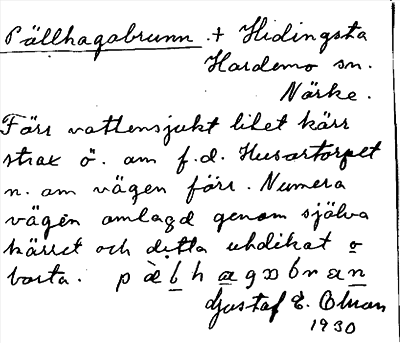 Pällhagabrunn .+ Hidingsta
Hardemo sn.
Närke.
Förr vattensjukt litet kärr
strax ö. om f.d. Husartorpet
n. om vägen förr. Numera
vägen omlagd genom själva
kärret och detta utdikat o
borta. p ä b h a g ɔ b r a n
Gustaf E. Olsson
1930